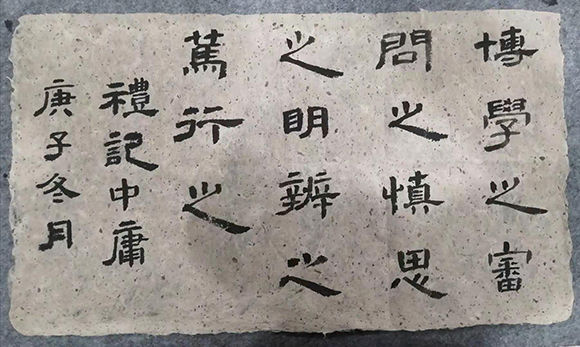 博學之審
問之慎思
之明辨之
篤行之
禮記中庸
庚子冬月